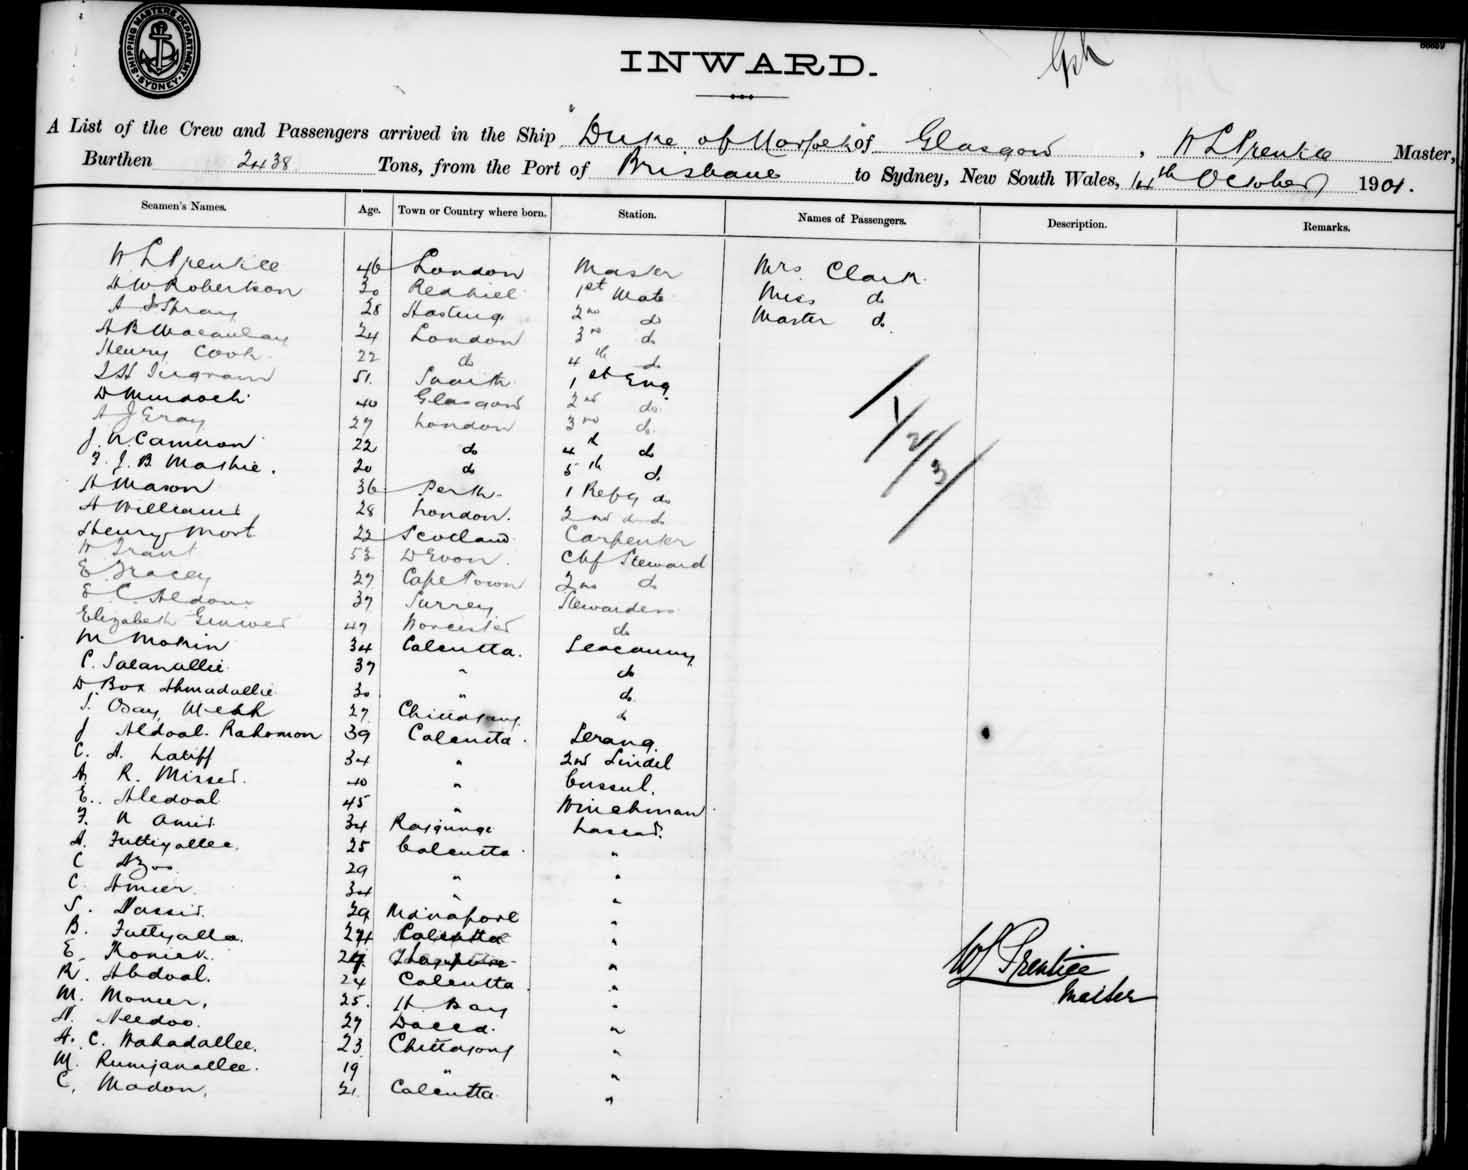 SHIPPING MASTERS DEPARTMENT SYDNEY
INWARD.
A List of the Crew and Passengers arrived in the Ship Duke of Norfolk of Glasgow, W L Prentice Master,
Burthen 2438 Tons, from the Port of Brisbane to Sydney, New South Wales, 14th October 1901.
Seamen's Names. Age. Town or Country where born. Station. Names of Passengers. Description. Remarks.
W L Prentice 46 London Master Mrs. Clark.
A W Robertson 30 Redhill 1st Mate Miss do
A J Spray 28 Hastings 2nd do Master do.
A B Macaulay 24 London 3rd do
Henry Cook. 22 do 4th do
J H Ingram 51. South 1st Eng.
D Murdoch 40 Glasgow 2nd do.
A J Gray 27 London 3rd do.
J. N. Cameron 22 do 4th do
J. B Mashie. 20 do 5th do.
H Mason 36 Perth. 1 Refg do
A Williams 28 London. 2nd do
Henry Mort 22 Scotland Carpenter
W Grant 53 Devon. Chf Steward
E Tracey 27 Cape Town 2nd do
E. C. 37 Surrey Stewardess
Elizabeth 47 Worcester do
M Mokin 34 Calcutta. Seacunny
C. Salamullie 37 " do
D. Box Ahmadallie 30 " do.
Osay 27 Chittagong. do
J Abdoal. Rahomon 39 Calcutta. Serang.
C. A. Latiff 34 " 2nd Tindel
A R. Misser. 40 " Cussul.
E. Abdoal 45 " Winchman
F. U Amir 34 Lascar.
A. Futtyallee. 25 Calcutta. "
C 29 " "
C. Ameer. 34 " "
S. Nassir. 29 "
B. Futtyalla. 24 Calcutta "
E. "
R. Abdoal. 24 Calcutta "
M. Moneer, 25. "
N. Needoo. 27 Dacca. "
A. C. Wahadallee. 23 Chittagong "
M. Rumjanallee. 19 " "
C, Madon, 21 Calcutta "
1/1/2/3/
W L Prentice
Master